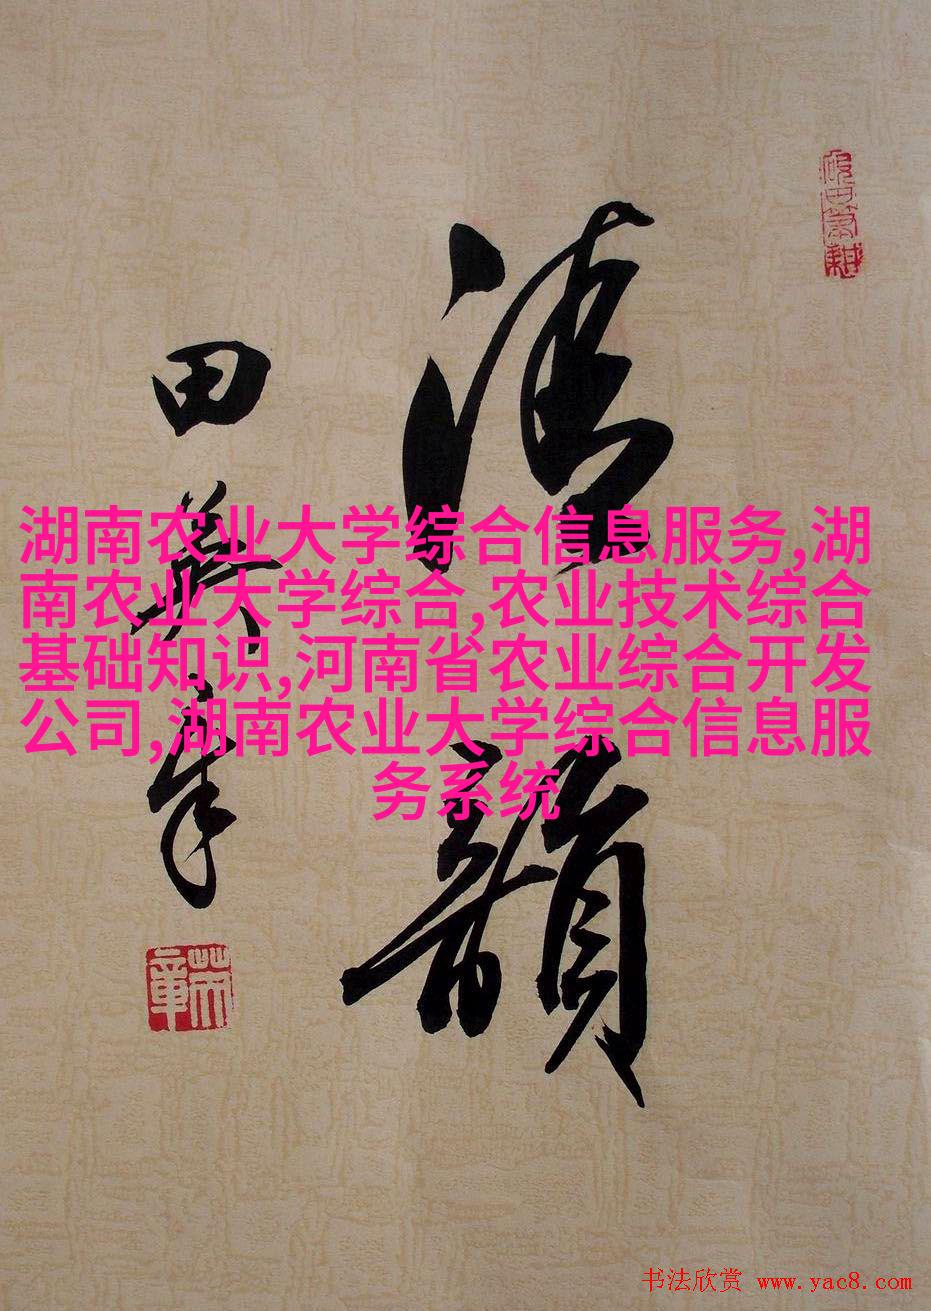 清韻
田英章
湖南农业大学综合信息服务,湖
南农业大学综合,农业技术综合
基础知识,河南省农业综合开发
公司,湖南农业大学综合信息服
务系统
书法欣赏 www.yac8.com